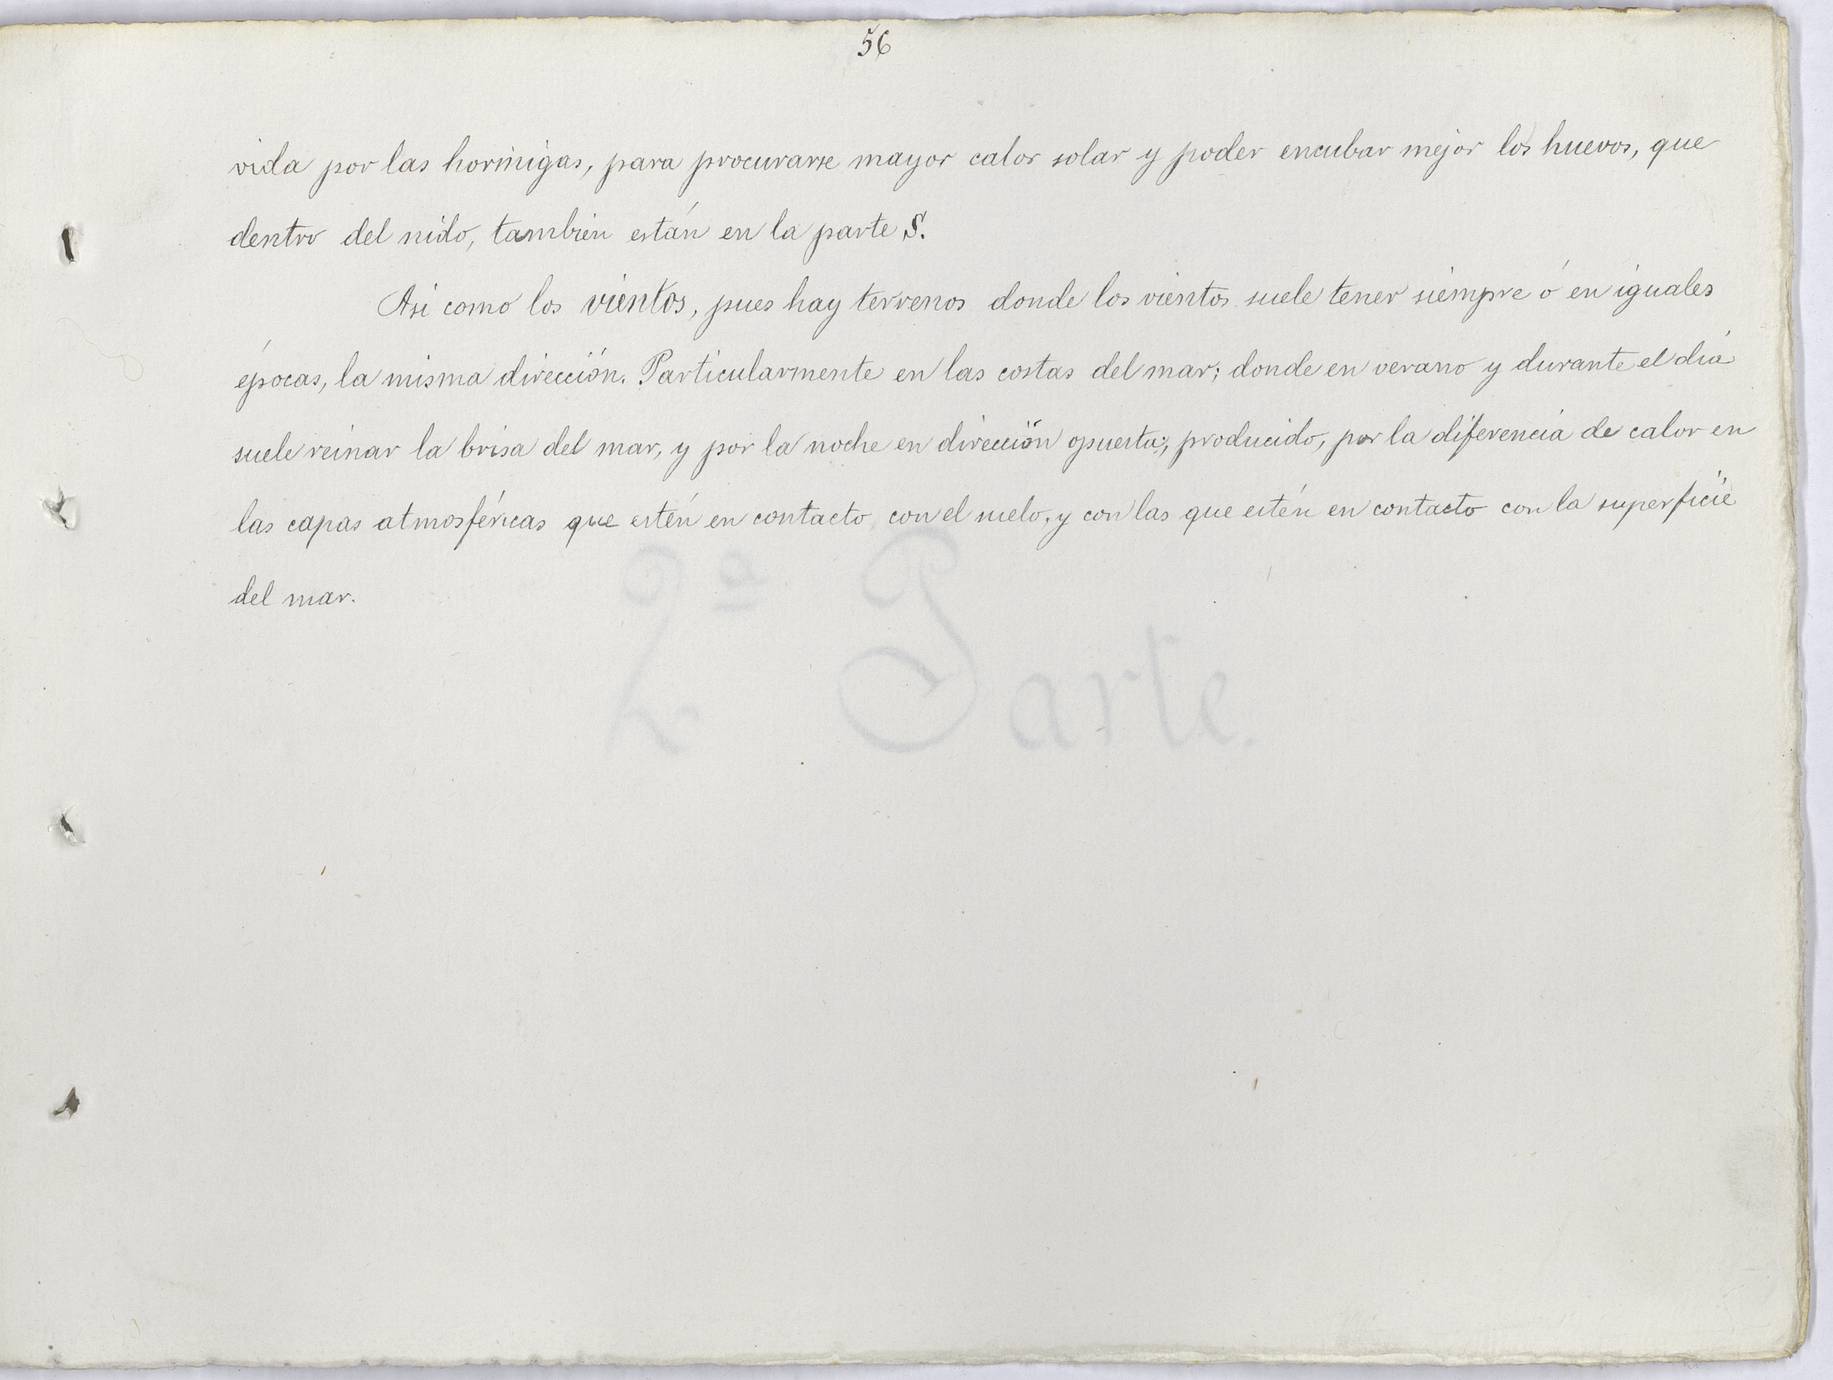 56
vida por las hormigas, para procurarse mayor calor solar y poder encubar mejor los huevos, que
dentro del nido, tambien están en la parte S.
Asi como los vientos, pues hay terrenos donde los vientos suele tener siempre ó en iguales
épocas, la misma dirección. Particularmente en las costas del mar; donde en verano y durante el dia
suele reinar la brisa del mar, y por la noche en dirección opuesta; producido, por la diferencia de calor en
las capas atmosféricas que estén en contacto con el suelo, y con las que estén en contacto con la superficie
del mar.
2ª Parte.